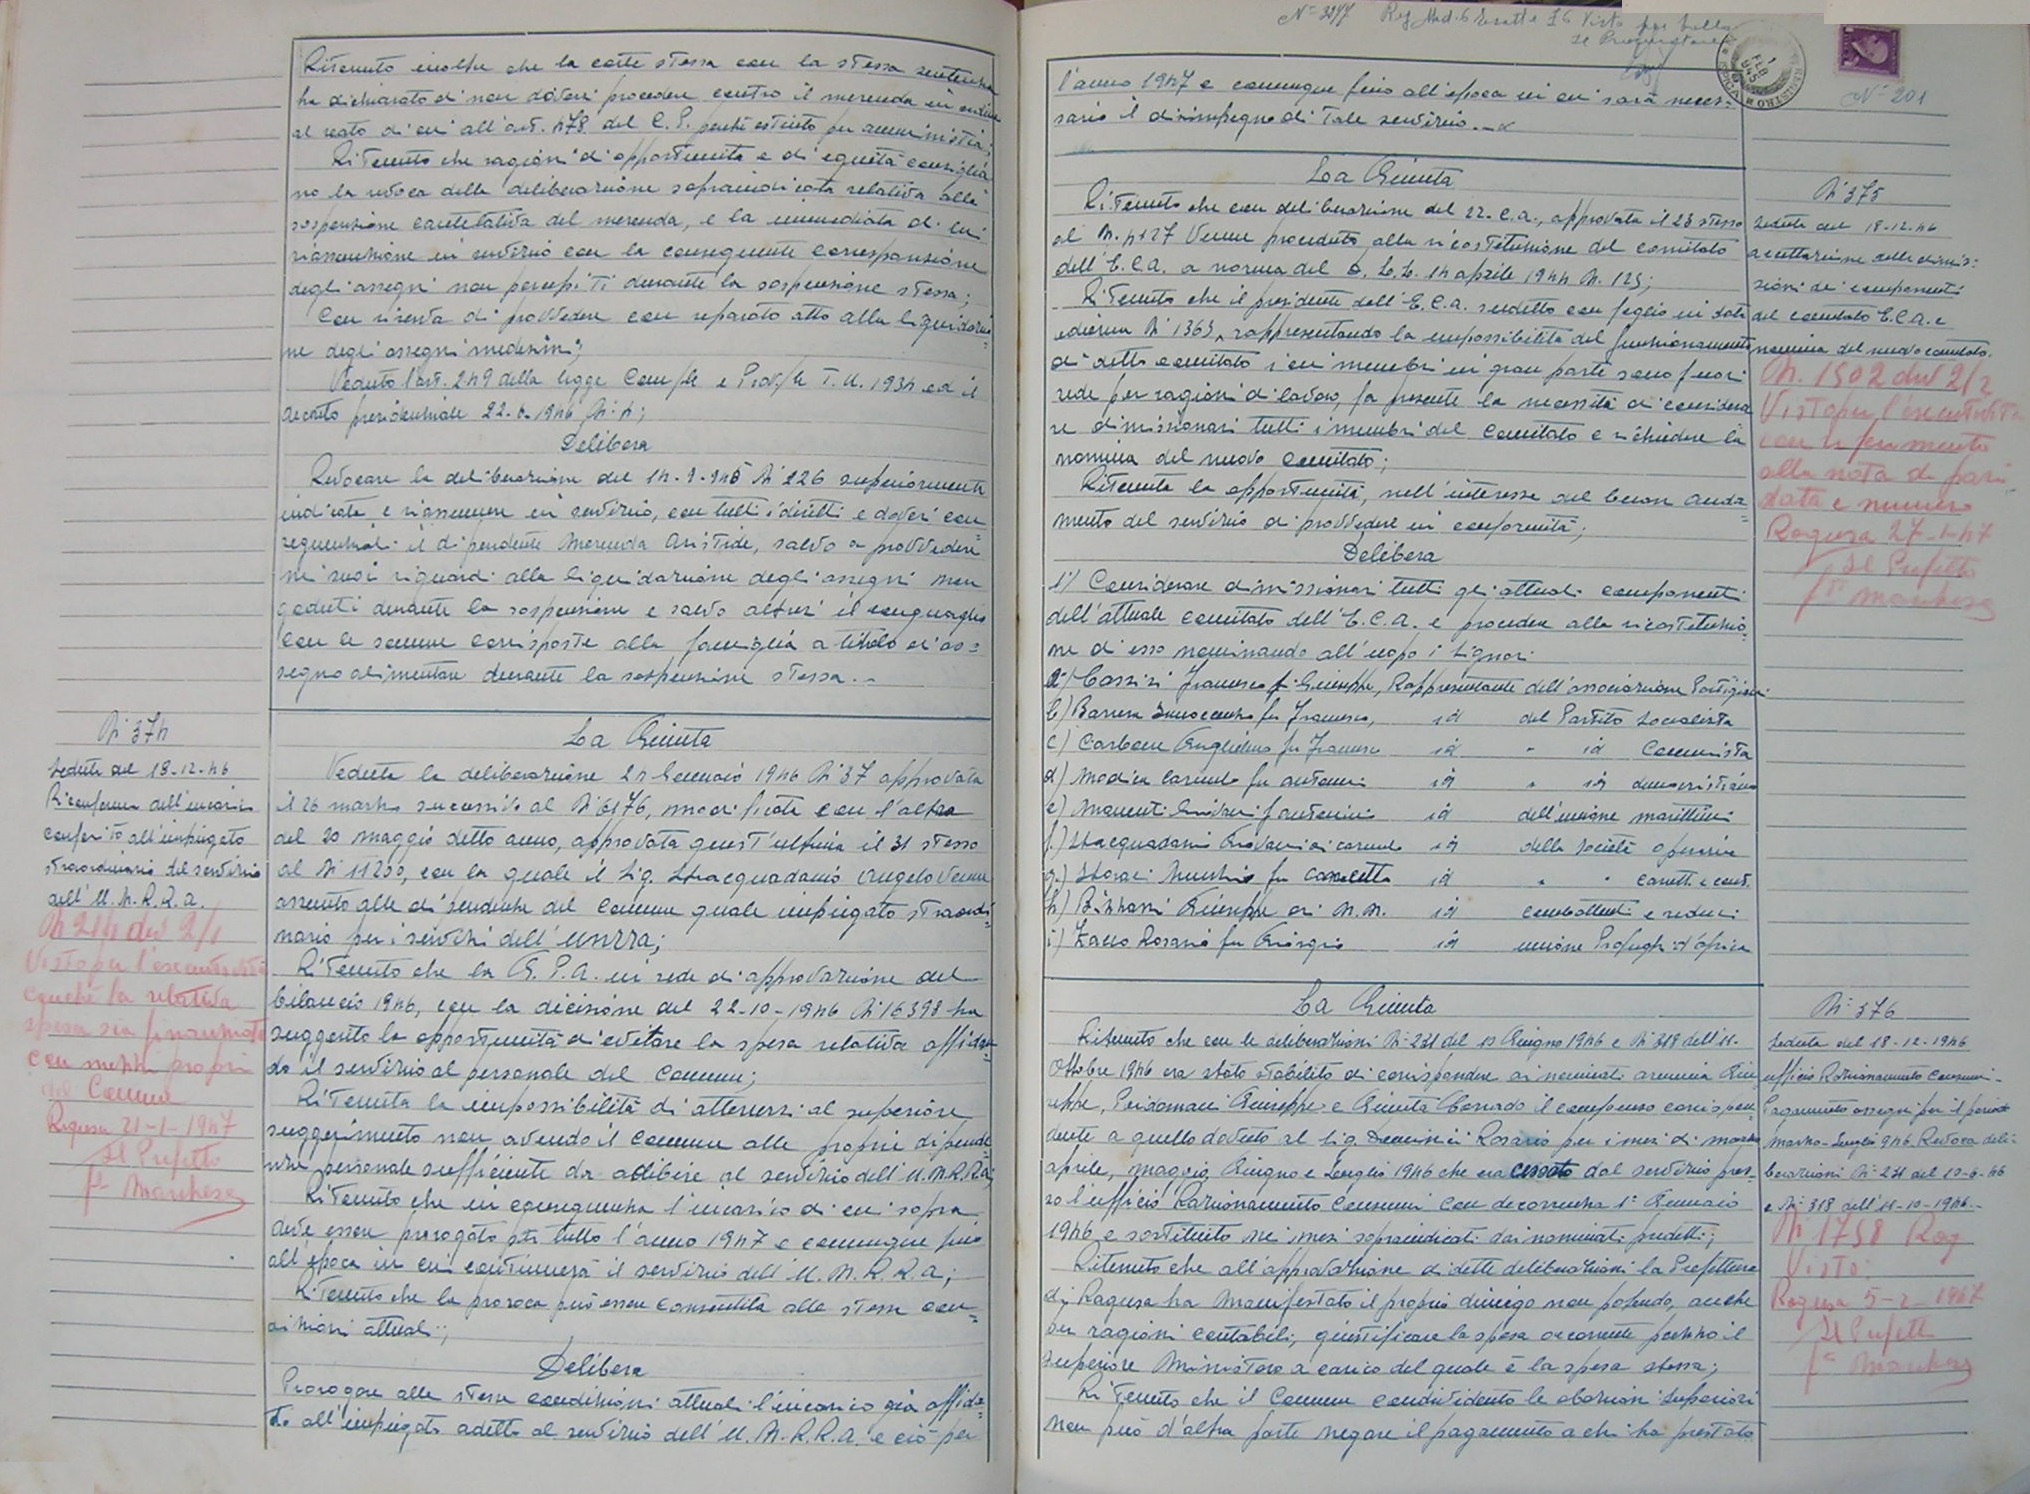 Ritenuto inoltre che la corte stessa con la stessa sentenza
ha dichiarato di non doversi procedere contro il Merenda in ordine
al reato di cui all'art. 478 del C.P. perché estinto per amnistia;
Ritenuto che ragioni di opportunità e di equità consiglia
no la revoca della deliberazione sopraindicata relativa alla
sospensione cautelativa del Merenda, e la immediata di lui
riassunzione in servizio con la conseguente corresponsione
degli assegni non percepiti durante la sospensione stessa;
Con riserva di provvedere con separato atto alla liquidazio
ne degli assegni medesimi;
Veduto l'art. 249 della legge Com/le e Prov/le T.U. 1934 ed il
decreto presidenziale 22.6.1946 N. 4;
Delibera
Revocare la deliberazione del 14-9-945 N. 226 superiormente
indicata e riassumere in servizio, con tutti i diritti e doveri con
sequenziali il dipendente Merenda Aristide, salvo a provvedere
nei suoi riguardi alla liquidazione degli assegni non
goduti durante la sospensione e salvo altresì il conguaglio
con le somme corrisposte alla famiglia a titolo di as=
segno alimentare durante la sospensione stessa.-
N. 374
Seduta del 18-12-46
Riconferma dell'incarico
conferito all'impiegato
straordinario del servizio
dell'U.N.R.R.A.
Visto per l'esecutività
la relativa
spesa sia finanziata
con mezzi propri
del Comune
Ragusa 21-1-1947
Il Prefetto
f° Marchese
La Giunta
Veduta la deliberazione 24 Gennaio 1946 N. 37 approvata
il 26 marzo successivo al N. 6176, modificata con l'altra
del 20 maggio detto anno, approvata quest'ultima il 31 stesso
al N. 11200, con la quale il Sig. Stracquadanio Angelo venne
assunto alle dipendenze del Comune quale impiegato straordi
nario per i servizi dell'UNRRA;
Ritenuto che la G.P.A. in sede di approvazione del
bilancio 1946, con la decisione del 22-10-1946 N. 16398 ha
suggerito la opportunità di evitare la spesa relativa affidan=
do il servizio al personale del Comune;
Ritenuta la impossibilità di attenersi al superiore
suggerimento non avendo il Comune alle proprie dipende
nze personale sufficiente da adibire al servizio dell'U.N.R.R.A;
Ritenuto che in conseguenza l'incarico di cui sopra
deve essere prorogato per tutto l'anno 1947 e comunque fino
all'epoca in cui continuerà il servizio dell'U.N.R.R.A;
Ritenuto che la proroga può essere consentita alle stesse con=
dizioni attuali;
Delibera
Prorogare alle stesse condizioni attuali l'incarico già affida=
to all'impiegato adetto al servizio dell'U.N.R.R.A. e ciò per
N. 201
l'anno 1947 e comunque fino all'epoca in cui sarà neces-
sario il disimpegno di tale servizio.-
La Giunta
Ritenuto che con deliberazione del 22. c.a., approvata il 23 stesso
al N. 4427 venne proceduto alla ricostituzione del comitato
dell'E.C.A. a norma del D.L.L. 14 aprile 1944 N. 125;
Ritenuto che il presidente dell'E.C.A. suddetto con foglio in data
odierna N. 1363, rappresentando la impossibilità del funzionamento
di detto comitato i cui membri in gran parte sono fuori
sede per ragioni di lavoro, fa presente la necessità di considera
re dimissionari tutti i membri del Comitato e richiedere la
nomina del nuovo Comitato;
Ritenuta la opportunità, nell'interesse del buon anda=
mento del servizio di provvedere in conformità;
Delibera
1°/ Considerare dimissionari tutti gli attuali componenti
dell'attuale comitato dell'E.C.A. e procedere alla ricostituzio
ne di esso nominando all'uopo i Signori
a) Francesco Giuseppe, Rappresentante dell'associazione Partigiani
b) Barrera Innocenzo fu Francesco, id del Partito Socialista
c) Carbone Guglielmo fu Francesco id " id Comunista
d) Modica Carmelo fu Antonio id " id democristiano
e) id dell'unione marittimi
f) Stracquadanio Giovanni di Carmelo id della Società operaia
g) id " "
h) Giuseppe di N.N. id combattenti e reduci
i) Zacco Rosario fu Giorgio id unione Profughi d'africa
N. 375
Seduta del 18-12-46
accettazione delle dimis=
sioni dei componenti
del comitato E.C.A. e
nomina del nuovo comitato.
N. 1502 div 2/2
Visto per l'esecutività
con riferimento
alla nota di pari
data e numero
Ragusa 27-1-47
Il Prefetto
f° Marchese
La Giunta
Ritenuto che con le deliberazioni N. 231 del 10 Giugno 1946 e N. 318 dell'11-
Ottobre 1946 era stato stabilito di corrispondere ai nominati Giu
seppe, Giuseppe e Giunta Corrado il compenso corrispon
dente a quello dovuto al Sig. Rosario per i mesi di marzo
aprile, maggio, Giugno e Luglio 1946 che era cessato dal servizio pres-
so l'ufficio Razionamento Consumi con decorrenza 1° Gennaio
1946 e sostituito nei mesi sopraindicati dai nominati predetti;
Ritenuto che all'approvazione di dette deliberazioni la Prefettura
di Ragusa ha manifestato il proprio diniego non potendo, anche
per ragioni contabili, giustificare la spesa occorrente presso il
superiore Ministero a carico del quale è la spesa stessa;
Ritenuto che il Comune condividendo le superiori
non può d'altra parte negare il pagamento a chi ha prestato
N. 376
Seduta del 18-12-1946
ufficio Razionamento Consumi-
Pagamento assegni per il periodo
marzo-Luglio 946. Revoca deli-
berazioni N. 231 del 10-6-46
e N. 318 dell'11-10-1946.-
N. 1758 Rag
Visto:
Ragusa 5-2-1947
Il Prefetto
f° Marchese